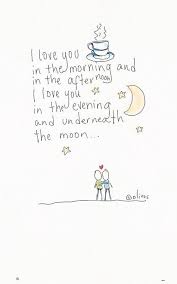 I love you
in the morning and
in the afternoon
I love you
in the evening
and underneath
the moon...